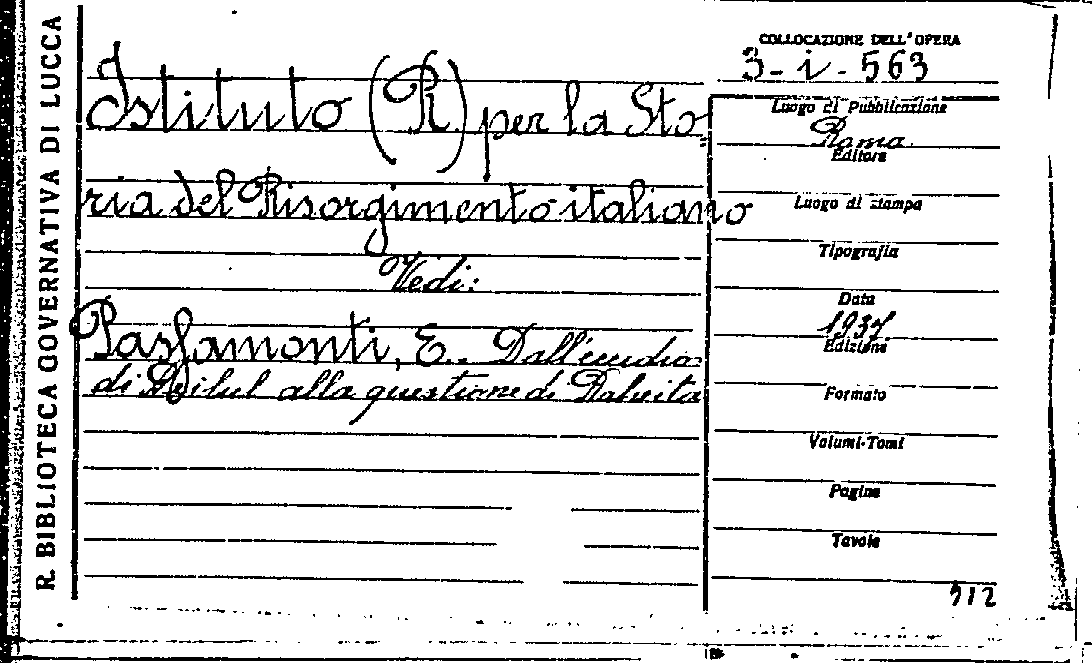 R. BIBLIOTECA GOVERNATIVA DI LUCCA
COLLOCAZIONE DELL'OPERA
3-i-563
Istituto (R) per la Sto-
ria del Risorgimento italiano
Vedi:
Passamonti, E. Dall'eccidio
di Beilul alla questione di Raheita
Luogo di Pubblicazione
Roma
Editore
Luogo di stampa
Tipografia
Data
1937
Edizioni
Formato
Volumi-Tomi
Pagine
Tavole
912